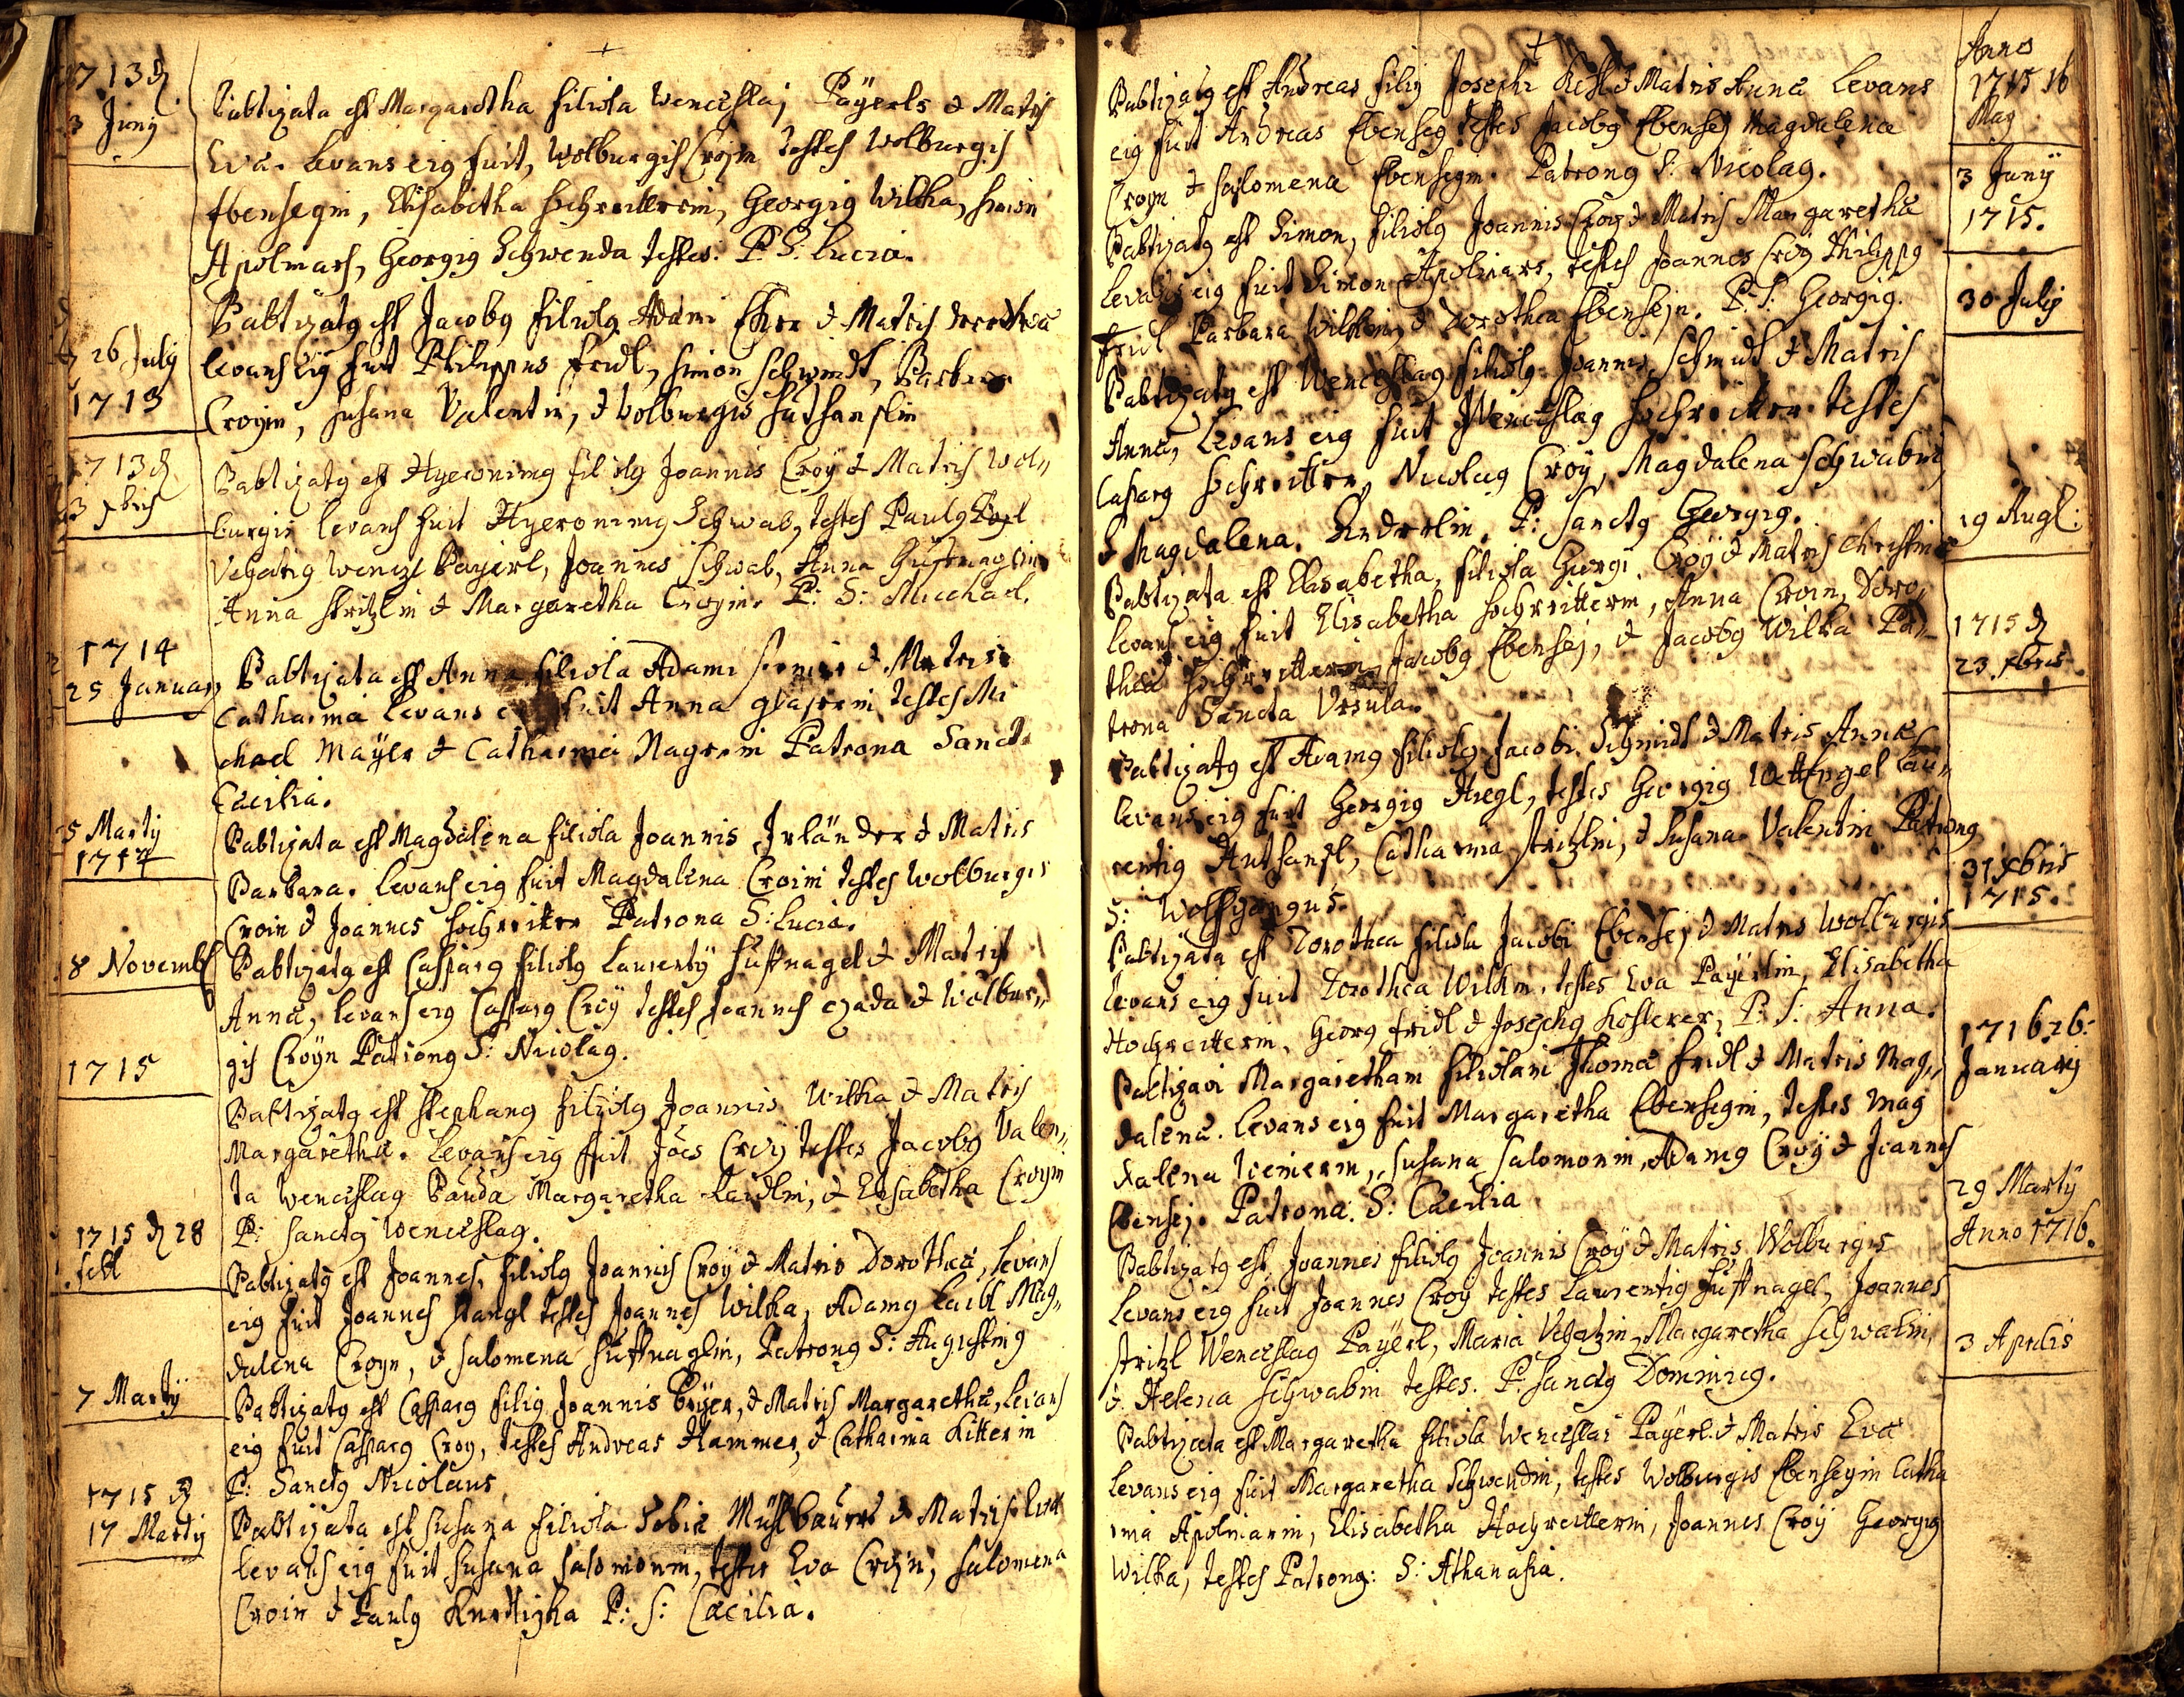 1713 d
3 Junij
Babtizata est Margaretha filiola Wenceslaj Paÿerls & Matris
Eva. Levans eig fuit, Wolburgis Croyin testes Wolburgis
Ebensegin, Elisabetha Hochreitterin, Georgig Wilka, Simon
Apolmars, Georgig Schwenda testes. P. S: Lucia.
26 Julÿ
1713
Babtizatg est Jacobg filiolg Adami & Matris
levans eig fuit Philippus fridl, Simon Schwendt, Barbara
Croyin, Susana Valentin, & Wolburgis
1713 d
3 xbris
Babtizatg est Hyeronimg filiolg Joannis Croÿ & Matris Wol„
burgis levans fuit Hyeronimg Schwab, testes Paulg
Wenczl Paÿerl, Joannes Schwab, Anna Huffnaglin
Anna Stritzlin & Margaretha Croyin. P: S: Michael.
1714
25 Januarÿ
Babtizata est Anna filiola Adami & Matris
Catharina levans eig fuit Anna glaserin testes Mi
chael Maÿer & Catharina Nagerin Patrona Sancta
Cæcilia.
5 Martÿ
1714
Babtizata est Magdalena filiola Joannis Irländer & Matris
Barbara. Levans eig fuit Magdalena Croini testes Wolburgis
Croin & Joannes Hochreitter Patrona S: Lucia.
8 Novembr
Babtizatg est Casparg filiolg Laurentÿ Huffnagel & Matris
Anna, levans eig Casparg Croÿ testes Joannes czada & Wolbur„
gis Croÿn Patrong S: Nicolag.
1715
Babtizatg est Stephang filiolg Joannis Wilka & Matris
Margaretha. Levans eig fuit Joes Croÿ testes Jacobg Valen„
ta Wenceslag Bauda Margaretha Laidlin, & Elisabetha Croyin
P: Sanctg Wenceslag.
1715 d 28
febr
Babtizatg est Joannes, filiolg Joannis Croÿ & Matris Dorothea, levans
eig fuit Joannes Stangl testes Joannes Wilka, Adamg Laidl Mag„
dalena Croyn, & Salomena Huffnaglin, Patrong S: Augusting
7 Martÿ
Babtizatg est Casparg filig Joannis Beÿer, & Matris Margaretha, levans
eig fuit Casparg Croy, testes Andreas Hammer, & Catharina Ritterin
P: Sanctg Nicolaus
1715 d
17 Martÿ
Babtizata est Susana filiola Tobia Mühlbauers & Matris Eva
levans eig fuit Susana Salomonin, testes Eva Croyn, Salomena
Croin & Paulg P: S: Cæcilia.
Anno
1715 16
May
Babtizatg est Andreas filig Josephi & Matris Anna Levans
eig fuit Andreas Ebenseg testes Jacobg Ebenseg Magdalena
Croyn & Salomena Ebensegin. Patrong S: Nicolag.
3 Junÿ
1715.
Babtizatg est Simon, filiolg Joannis Croÿ & Matris Margaretha
levans eig fuit Simon Apolinars, testes Joannes Croÿ Philippg
fridl Barbara Wilkin, & Dorothea Ebensejn. P: S: Georgig.
30 Julÿ
Babtizatg est Wenceslag filiolg Joannis Schmidt & Matris
Anna, Levans eig fuit Wenceslag Hochreitter testes
Casparg Hochreitter, Nicolag Croÿ, Magdalena Schwabin
& Magdalena Anderlin. P: Sanctg Georgig.
19 Augl:
Babtizata est Elisabetha, filiola Georgi Croÿ & Matris Christina
levans eig fuit Elisabetha Hochreitterin, Anna Croin, Doro„
thea Hochreitterin Jacobg Ebensej, & Jacobg Wilka Pa„
trona Sancta Ursula.
1715 d
23 xbris
Babtizatg est Adamg filiolg Jacobi Schmidt & Matris Anna
levans eig fuit Georgig Hiegl, testes Georgig Lau„
rentig Catharina Stritzlin, & Susana Valentin Patrong
S: Wolffgangus.
31 xbris
1715.
Babtizata est Dorothea filiola Jacobi Ebensej & Matris Wolburgis
levans eig fuit Dorothea Wilkin, testes Eva Paÿerlin, Elisabetha
Hochreitterin, Georg fridl & Josephg Kosterer, P: S: Anna.
1716 26
Januarij
Babtizavi Margaretham filiolam Thoma fridl & Matris Mag„
dalena. Levans eig fuit Margaretha Ebensegin, testes Mag
dalena Susana Salomonin, Adamg Croÿ & Joannes
Ebensej. Patrona. S: Cæcilia
29 Martÿ
Anno 1716.
Babtizatg est Joannes filiolg Joannis Croÿ & Matris Wolburgis
levans eig fuit Joannes Croy testes Laurentig Huffnagel, Joannes
Stritzl Wenceslag Paÿerl, Maria Margaretha Schwabin,
& Helena Schwabin testes. P. Sanctg Dominicg.
3 Aprilis
Babtizata est Margaretha filiola Wenceslai Paÿerl & Matris Eva
levans eig fuit Margaretha Schwendin, testes Wolburgis Ebensegin Catha
rina Apolmarin, Elisabetha Hochreitterin, Joannes Croÿ Georgig
Wilka, testes Patrong: S: Athanasia.